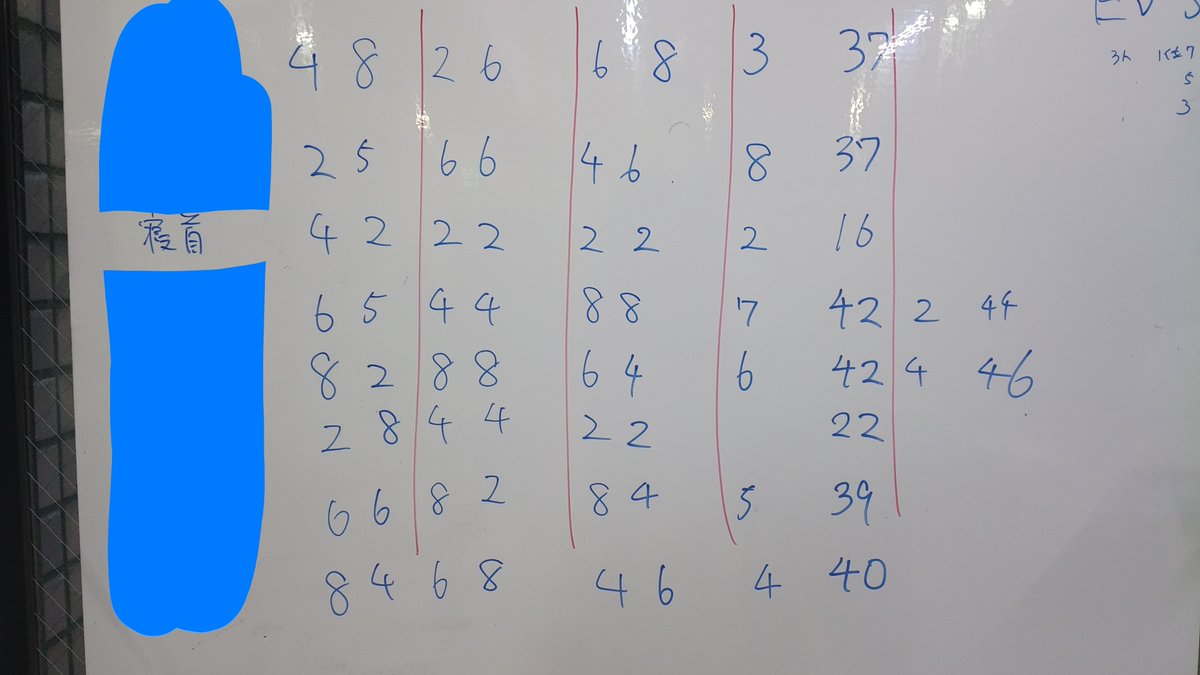 4 8 2 6 6 8 3 37
2 5 6 6 4 6 8 37
寝首 4 2 2 2 2 2 2 16
6 5 4 4 8 8 7 42 2 44
8 2 8 8 6 4 6 42 4 46
2 8 4 4 2 2 22
6 6 8 2 8 4 5 39
8 4 6 8 4 6 4 40
5
3